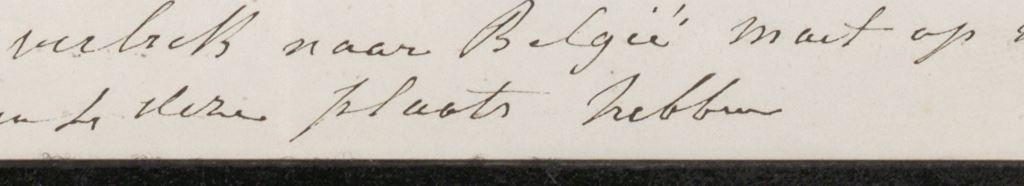 vertrek naar België moet op
dezer plaats hebben